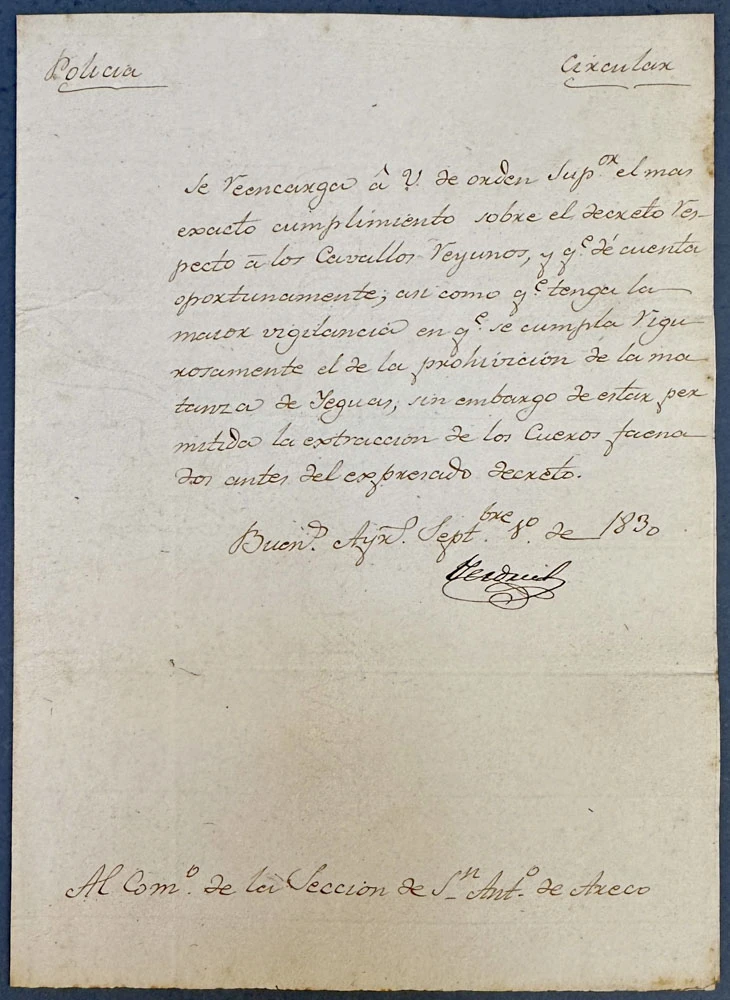 Policia
Circular
Se reencarga â V. de orden Sup.or el mas
exacto cumplimiento sobre el decreto res-
pecto â los Cavallos reyunos, y q.e dé cuenta
oportunamente; asi como q.e tenga la
maior vigilancia en q.e se cumpla rigu-
rosamente el de la prohivicion de la ma
tanza de Yeguas, sin embargo de estar per
mitida la extraccion de los Cueros faena-
dos antes del expresado decreto.
Buen.s Ayr.s Sept.bre 1o. de 1830
Al Com.o de la Seccion de S.n Ant.o de Areco